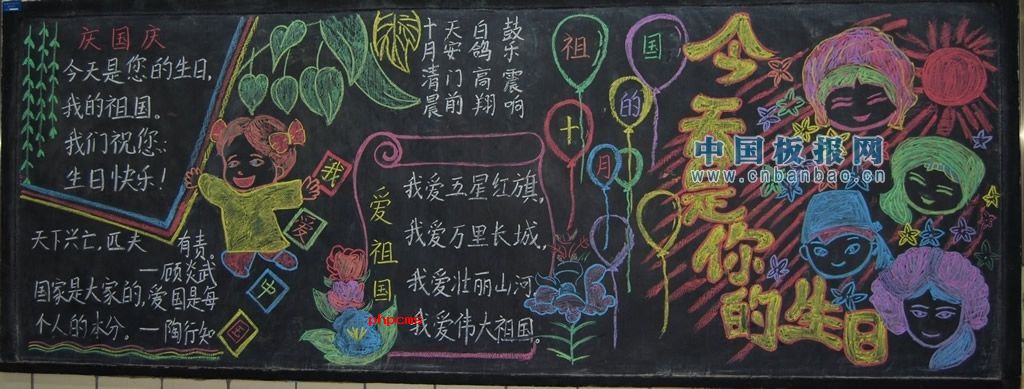 庆国庆
今天是您的生日,
我的祖国。
我们祝您:
生日快乐!
天下兴亡,匹夫 有责。
—顾炎武
国家是大家的,爱国是每
个人的本分。—陶行知
我爱中国
十月清晨
天安门前
白鸽高翔
鼓乐震响
爱祖国
我爱五星红旗,
我爱万里长城,
我爱壮丽山河
我爱伟大祖国。
祖国的十月
今天是你的生日
中国板报网
www.cnbanbao.cn